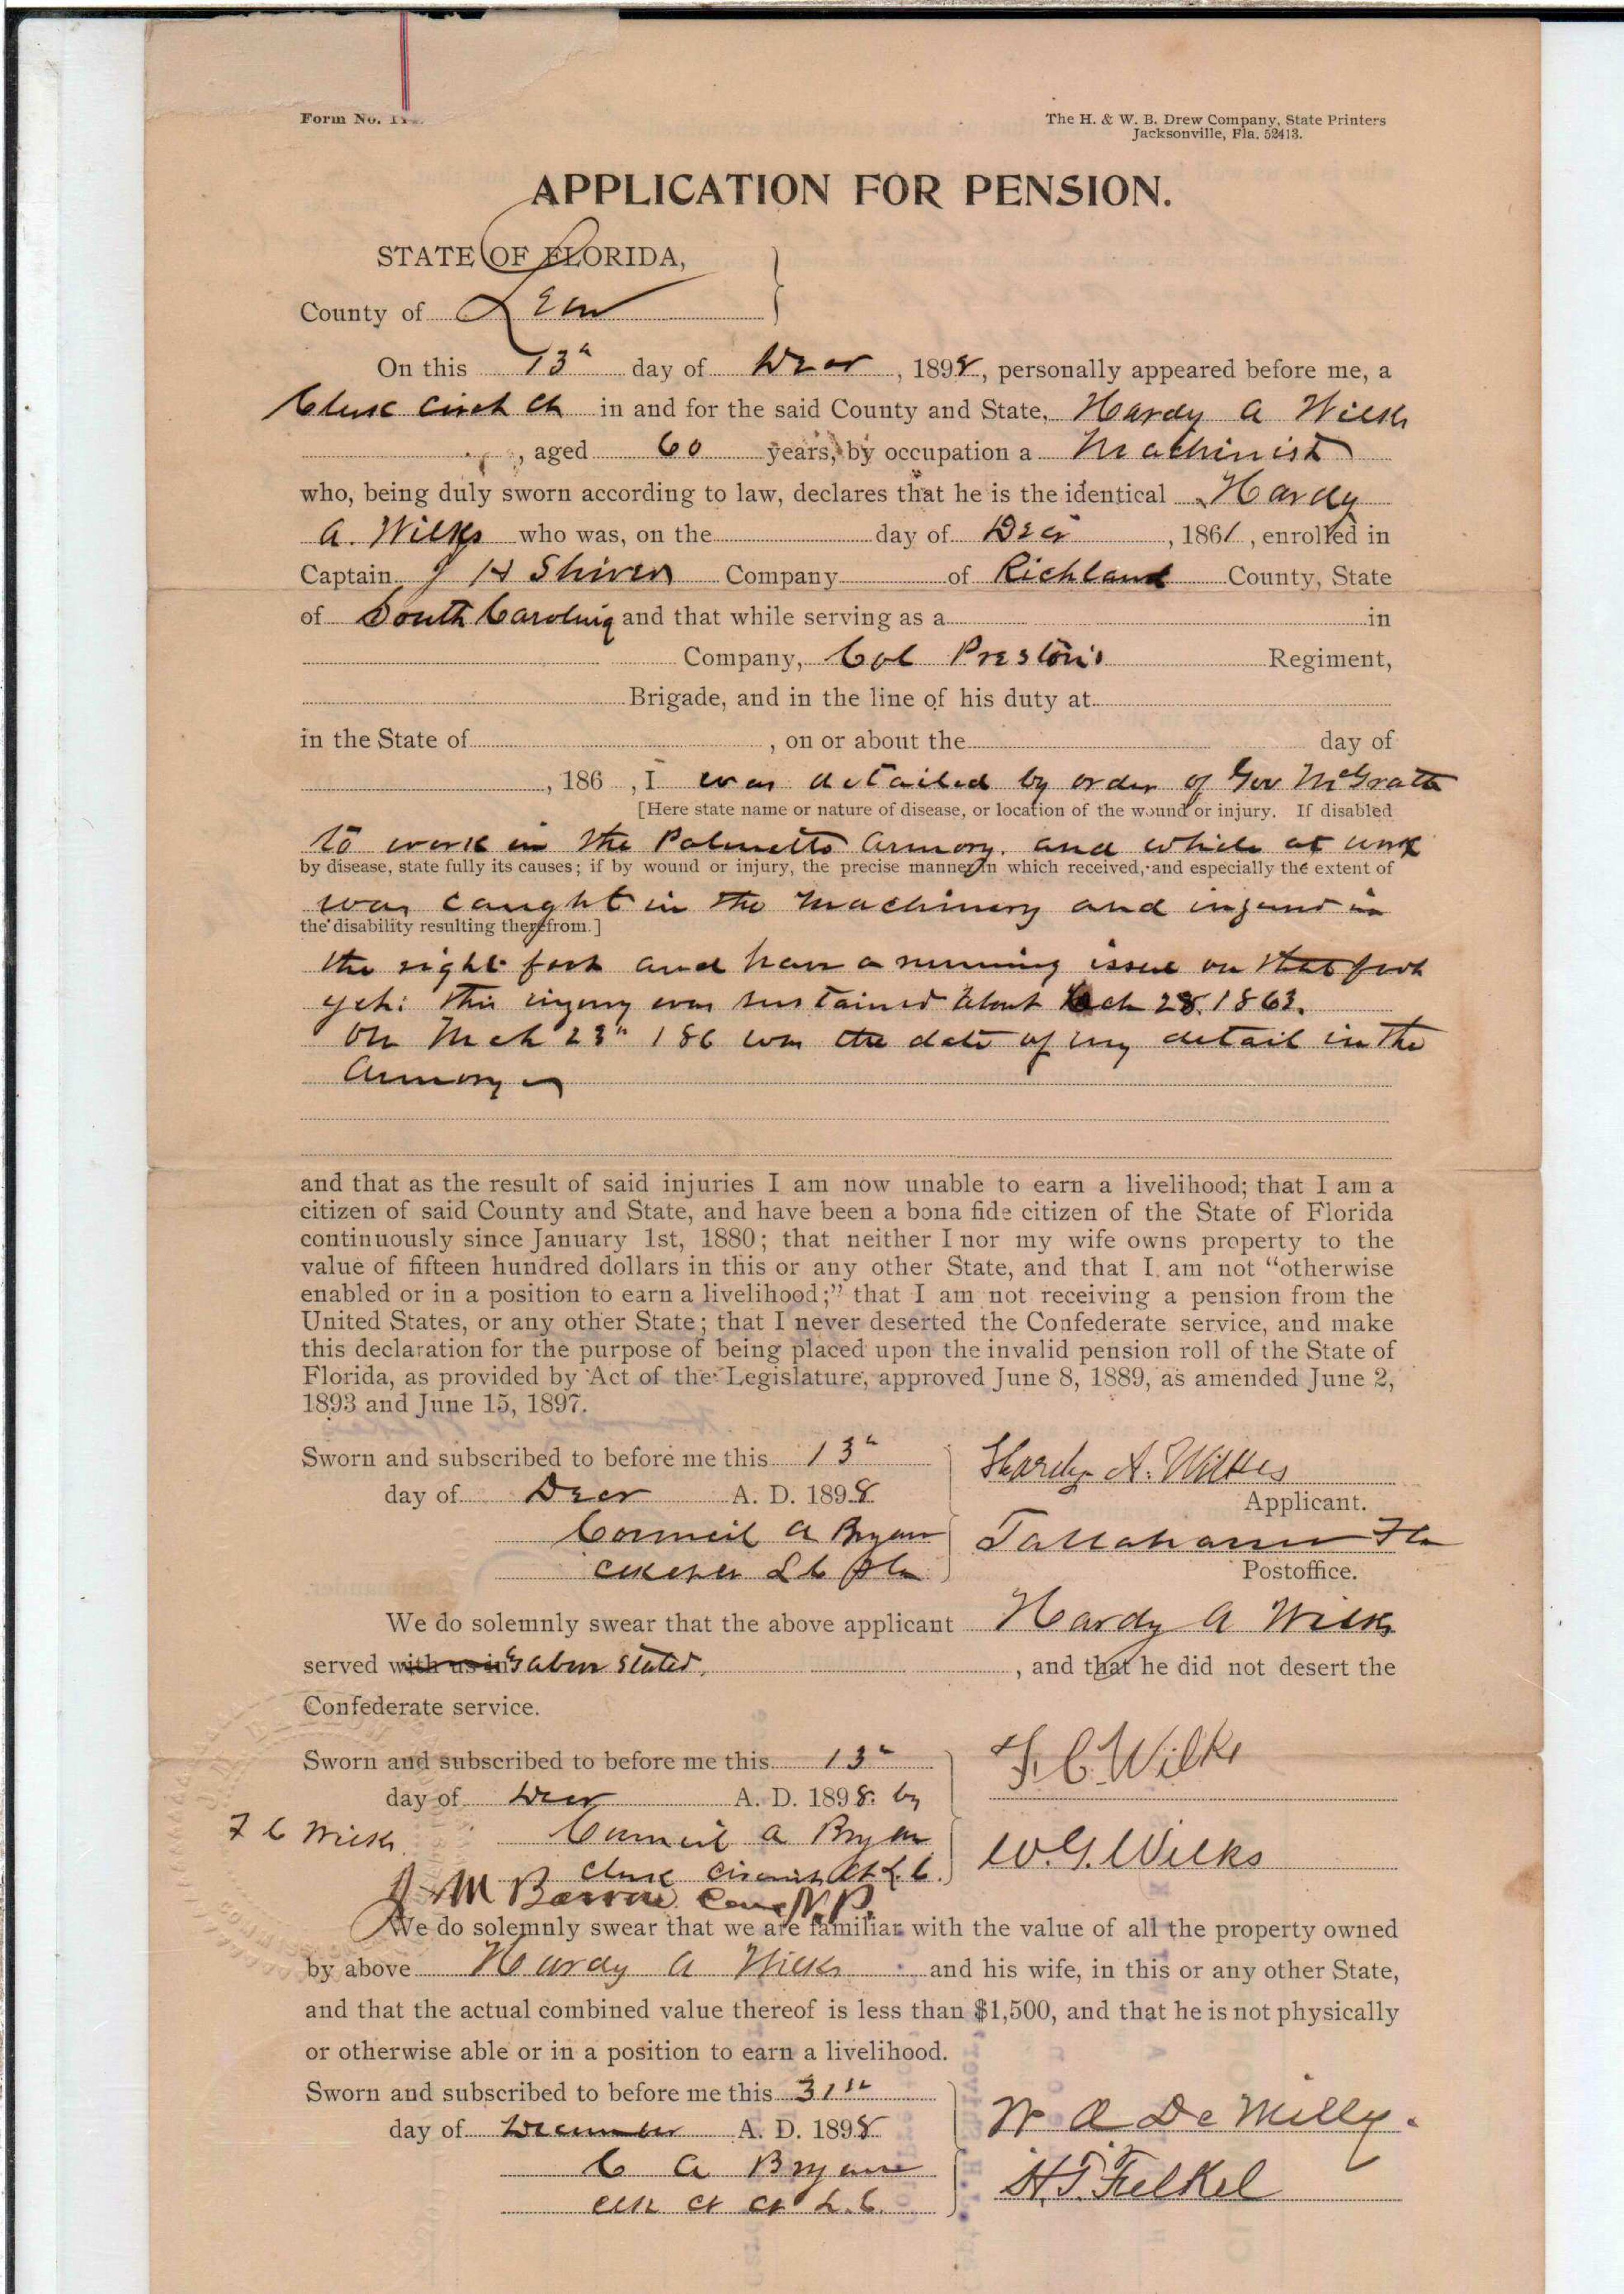 Form No.
The H. & W. B. Drew Company, State Printers
Jacksonville, Fla. 52413.
APPLICATION FOR PENSION.
STATE OF FLORIDA,
County of Leon
On this 13th day of Decr, 1898, personally appeared before me, a
Clerk Circt Ct in and for the said County and State, Hardy A Wilks
, aged 60 years, by occupation a Machinist
who, being duly sworn according to law, declares that he is the identical Hardy
A. Wilks who was, on the day of Decr, 1861, enrolled in
Captain J H Shiver Company of Richland County, State
of South Carolina and that while serving as a in
Company, Col Preston's Regiment,
Brigade, and in the line of his duty at
in the State of , on or about the day of
, 186 , I was detailed by order of Gov McGrath
[Here state name or nature of disease, or location of the wound or injury. If disabled
to work in the Palmetto Armory. and while at work
by disease, state fully its causes; if by wound or injury, the precise manner in which received, and especially the extent of
was caught in the machinery and injured in
the disability resulting therefrom.]
the right foot and have a running issue on that foot
yet: this injury was sustained about 28. 1863.
On Mch 23" 186 was the date of my detail in the
Armory
and that as the result of said injuries I am now unable to earn a livelihood; that I am a
citizen of said County and State, and have been a bona fide citizen of the State of Florida
continuously since January 1st, 1880; that neither I nor my wife owns property to the
value of fifteen hundred dollars in this or any other State, and that I am not "otherwise
enabled or in a position to earn a livelihood;" that I am not receiving a pension from the
United States, or any other State; that I never deserted the Confederate service, and make
this declaration for the purpose of being placed upon the invalid pension roll of the State of
Florida, as provided by Act of the Legislature, approved June 8, 1889, as amended June 2,
1893 and June 15, 1897.
Sworn and subscribed to before me this 13th Hardy A. Wilkes
day of Decr A. D. 1898 Applicant.
Council A Bryan Tallahassee Fla
L C Fla Postoffice.
We do solemnly swear that the above applicant Hardy A Wilks
served with us in as above stated, , and that he did not desert the
Confederate service.
Sworn and subscribed to before me this 13th F. C. Wilks
day of Decr A. D. 1898. by
F C Wilks. Council A Bryan W. G. Wilks
Clerk Circuit Ct L. C.
J M Barrow N.P.
We do solemnly swear that we are familiar with the value of all the property owned
by above Hardy A Wilks and his wife, in this or any other State,
and that the actual combined value thereof is less than $1,500, and that he is not physically
or otherwise able or in a position to earn a livelihood.
Sworn and subscribed to before me this 31st W A De Milly.
day of December A. D. 1898
C A Bryan H. T. Felkel
Clk Ct Ct L. C.